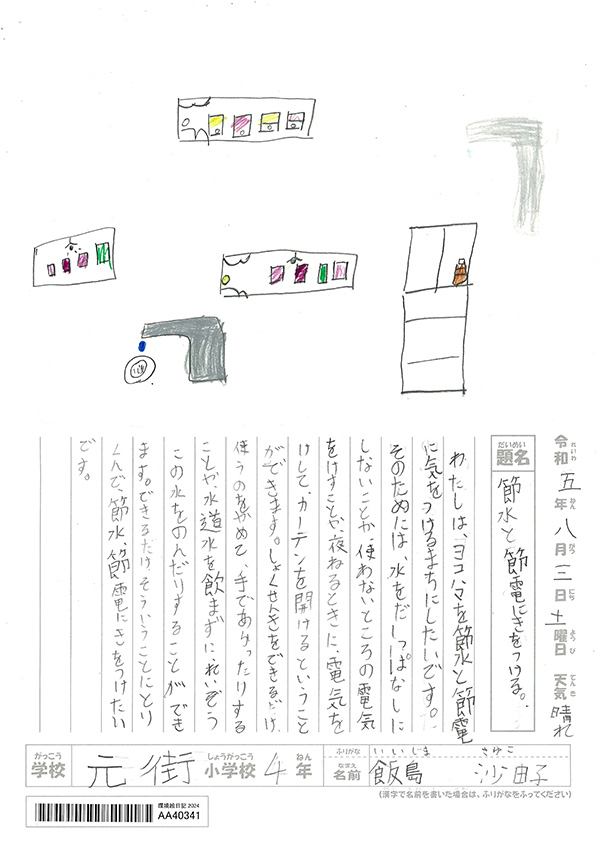 令和五年八月三日土曜日 天気 晴れ
れいわ ねん がつ にち ようび てんき
だいめい
題名 節水と節電にきをつける。
わたしは、ヨコハマを節水と節電
に気をつけるまちにしたいです。
そのためには、水をだしっぱなしに
しないことか、使わないところの電気
をけすことや、夜ねるときに、電気を
けして、カーテンを開けるということ
ができます。しょくせんきをできるだけ
使うのをやめて、手であらったりする
ことや、水道水を飲まずに、れいぞう
この水をのんだりすることができ
ます。できるだけ、そういうことにとり
くんで、節水、節電にきをつけたい
です。
がっこう しょうがっこう ねん
学校 元街 小学校 4年
ふりがな いいじま さゆこ
なまえ
名前 飯島 沙由子
(漢字で名前を書いた場合は、ふりがなをふってください)
環境絵日記 2024
AA40341